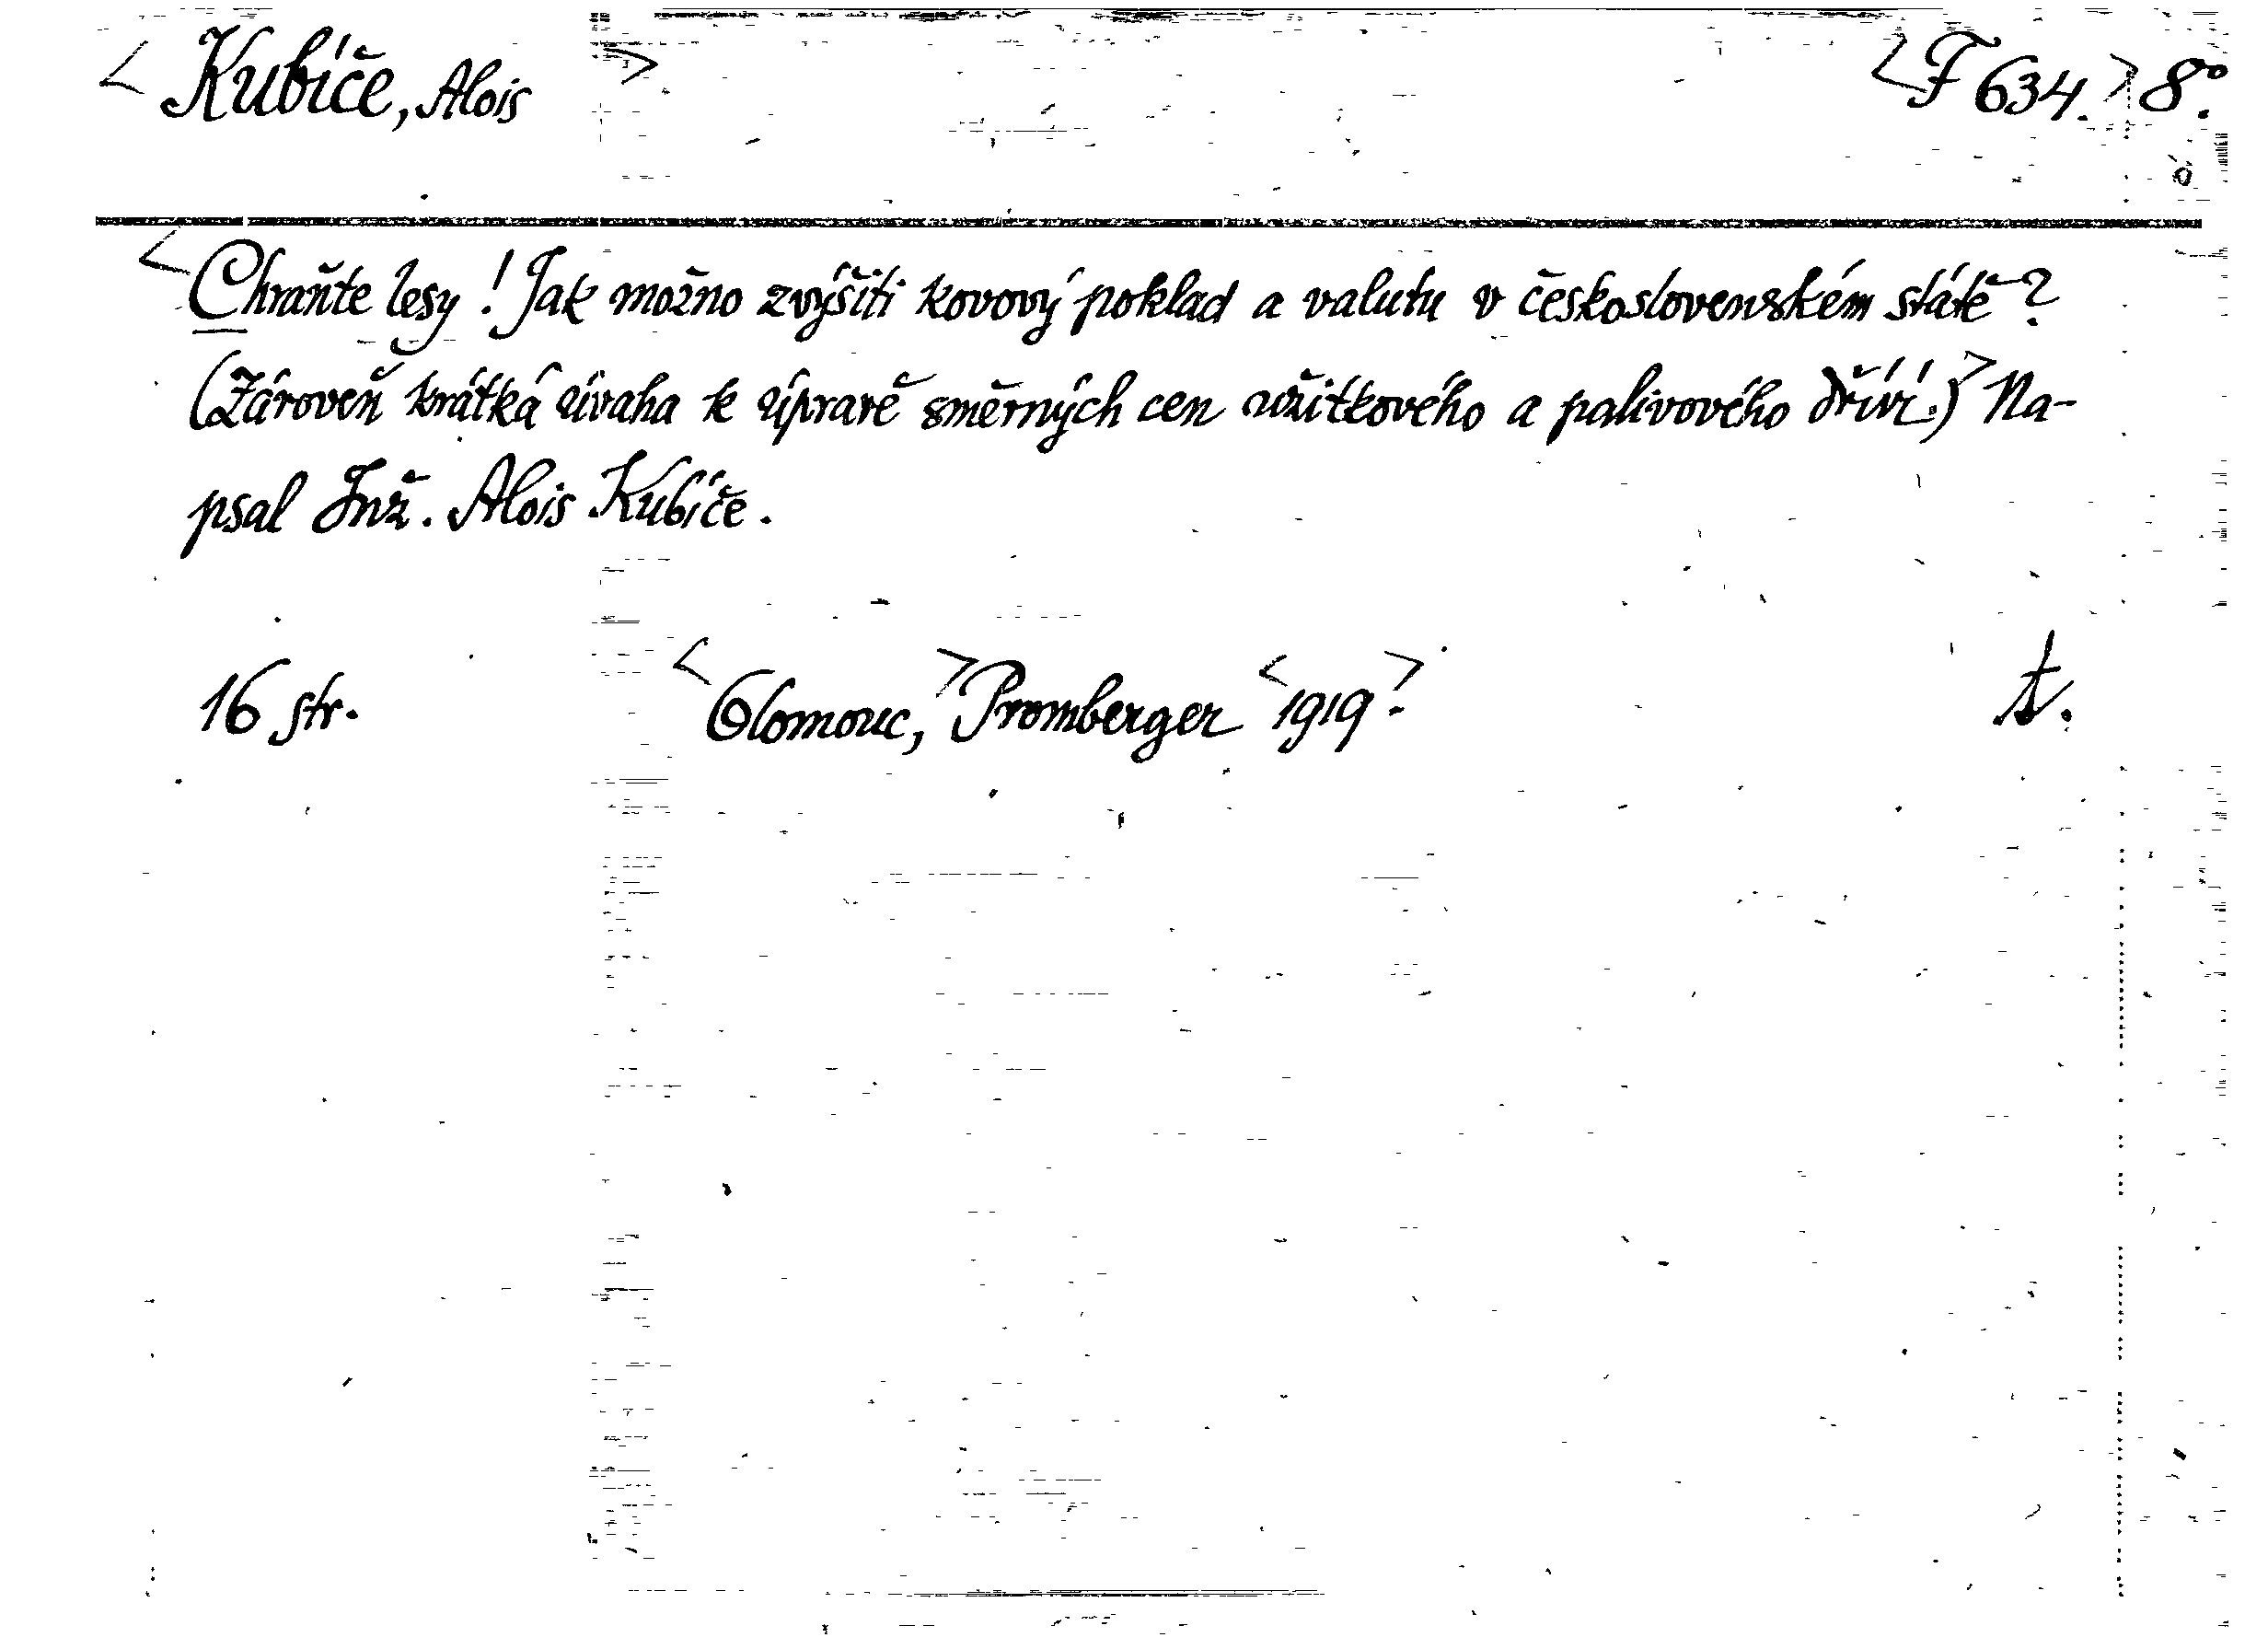 < Kubíče, Alois > < F 634. > 8°.
< Chraňte lesy! Jak možno zvýšiti kovový poklad a valutu v československém státě?
(Zároveň krátká úvaha k úpravě směrných cen užitkového a palivového dříví.) > Na-
psal Inž. Alois Kubíče.
16 str. < Olomouc, > Promberger < 1919. >